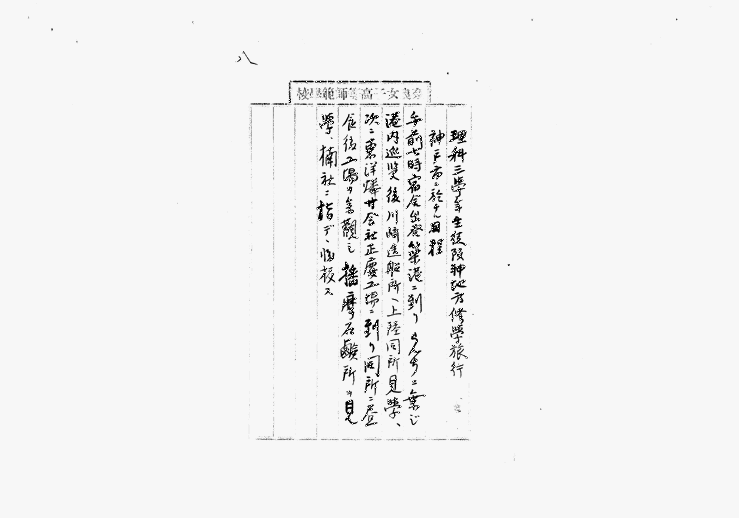 八
奈良女子高等師範學校
理科三學年生徒阪神地方修學旅行
神戸市ニ於ケル日程
午前七時宿舍出發築港ニ到リらんちニ乘じ
港内巡覽後川崎造船所ヘ上陸同所見學、
次ニ東洋燐寸会社正慶工場ニ到リ同所ニ昼
食後工場ヲ参觀シ播磨石鹸所ヲ見
學、楠社ニ詣デ、帰校ス